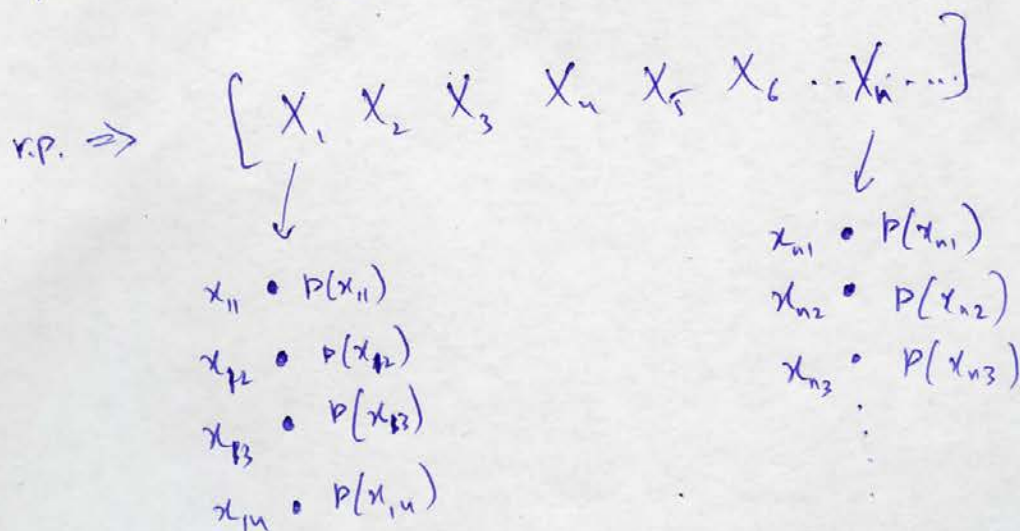 r.p. ⇒ [ X₁ X₂ X₃ X₄ X₅ X₆ ... Xₙ .... ]
x₁₁ • P(x₁₁)
x₁₂ • P(x₁₂)
x₁₃ • P(x₁₃)
x₁₄ • P(x₁₄)
xₙ₁ • P(xₙ₁)
xₙ₂ • P(xₙ₂)
xₙ₃ • P(xₙ₃)